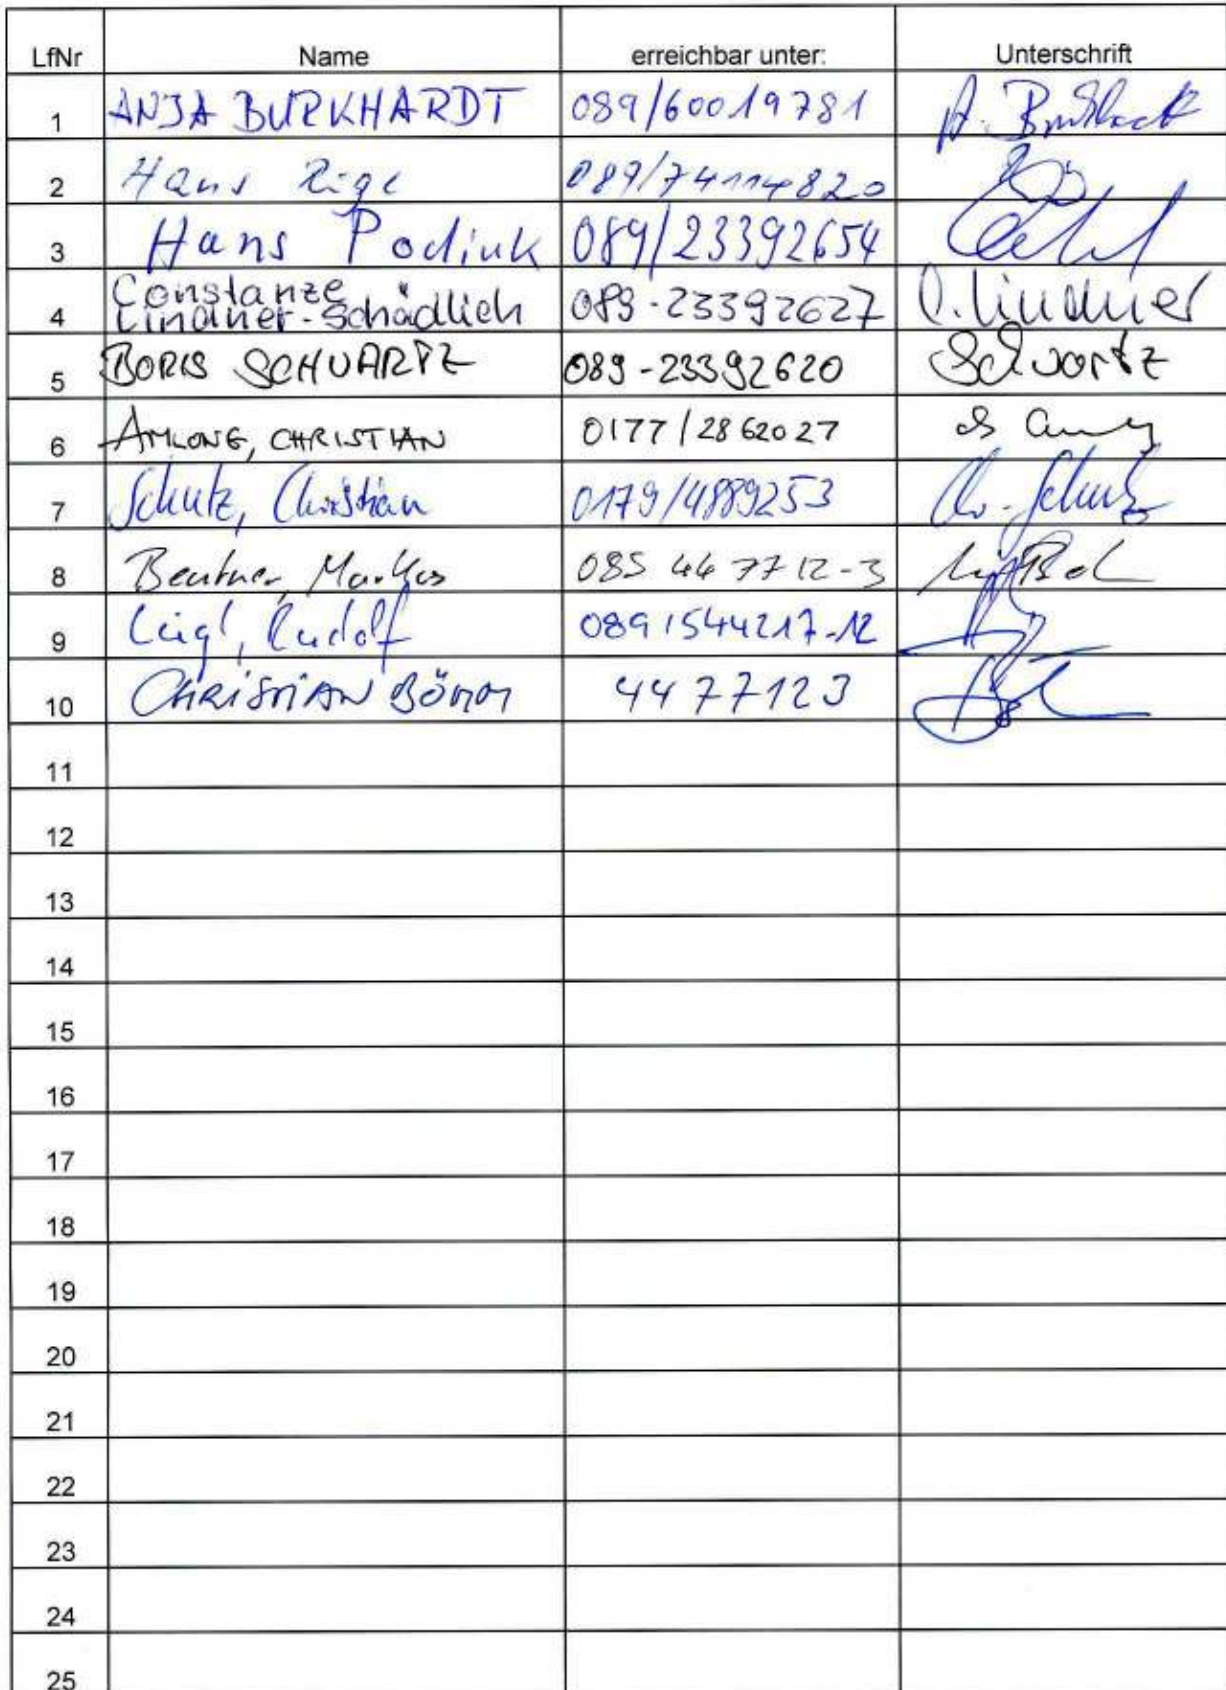 LfNr Name erreichbar unter: Unterschrift
1 ANJA BURKHARDT 089/60019781
2 Hans 089/74114820
3 Hans Podiuk 089/23392654
4 Constanze
Lindner-Schädlich 089-23392627 C. Lindner
5 BORIS SCHWARTZ 089-23392620 Schwartz
6 AMLONG, CHRISTIAN 0177/2862027
7 Schulz, Christian 0179/4889253 Chr. Schulz
8 Markus 089 44 77 12-3
9 Rudolf 089 1544217-12
10 CHRISTIAN BÖMM 4477123
11
12
13
14
15
16
17
18
19
20
21
22
23
24
25